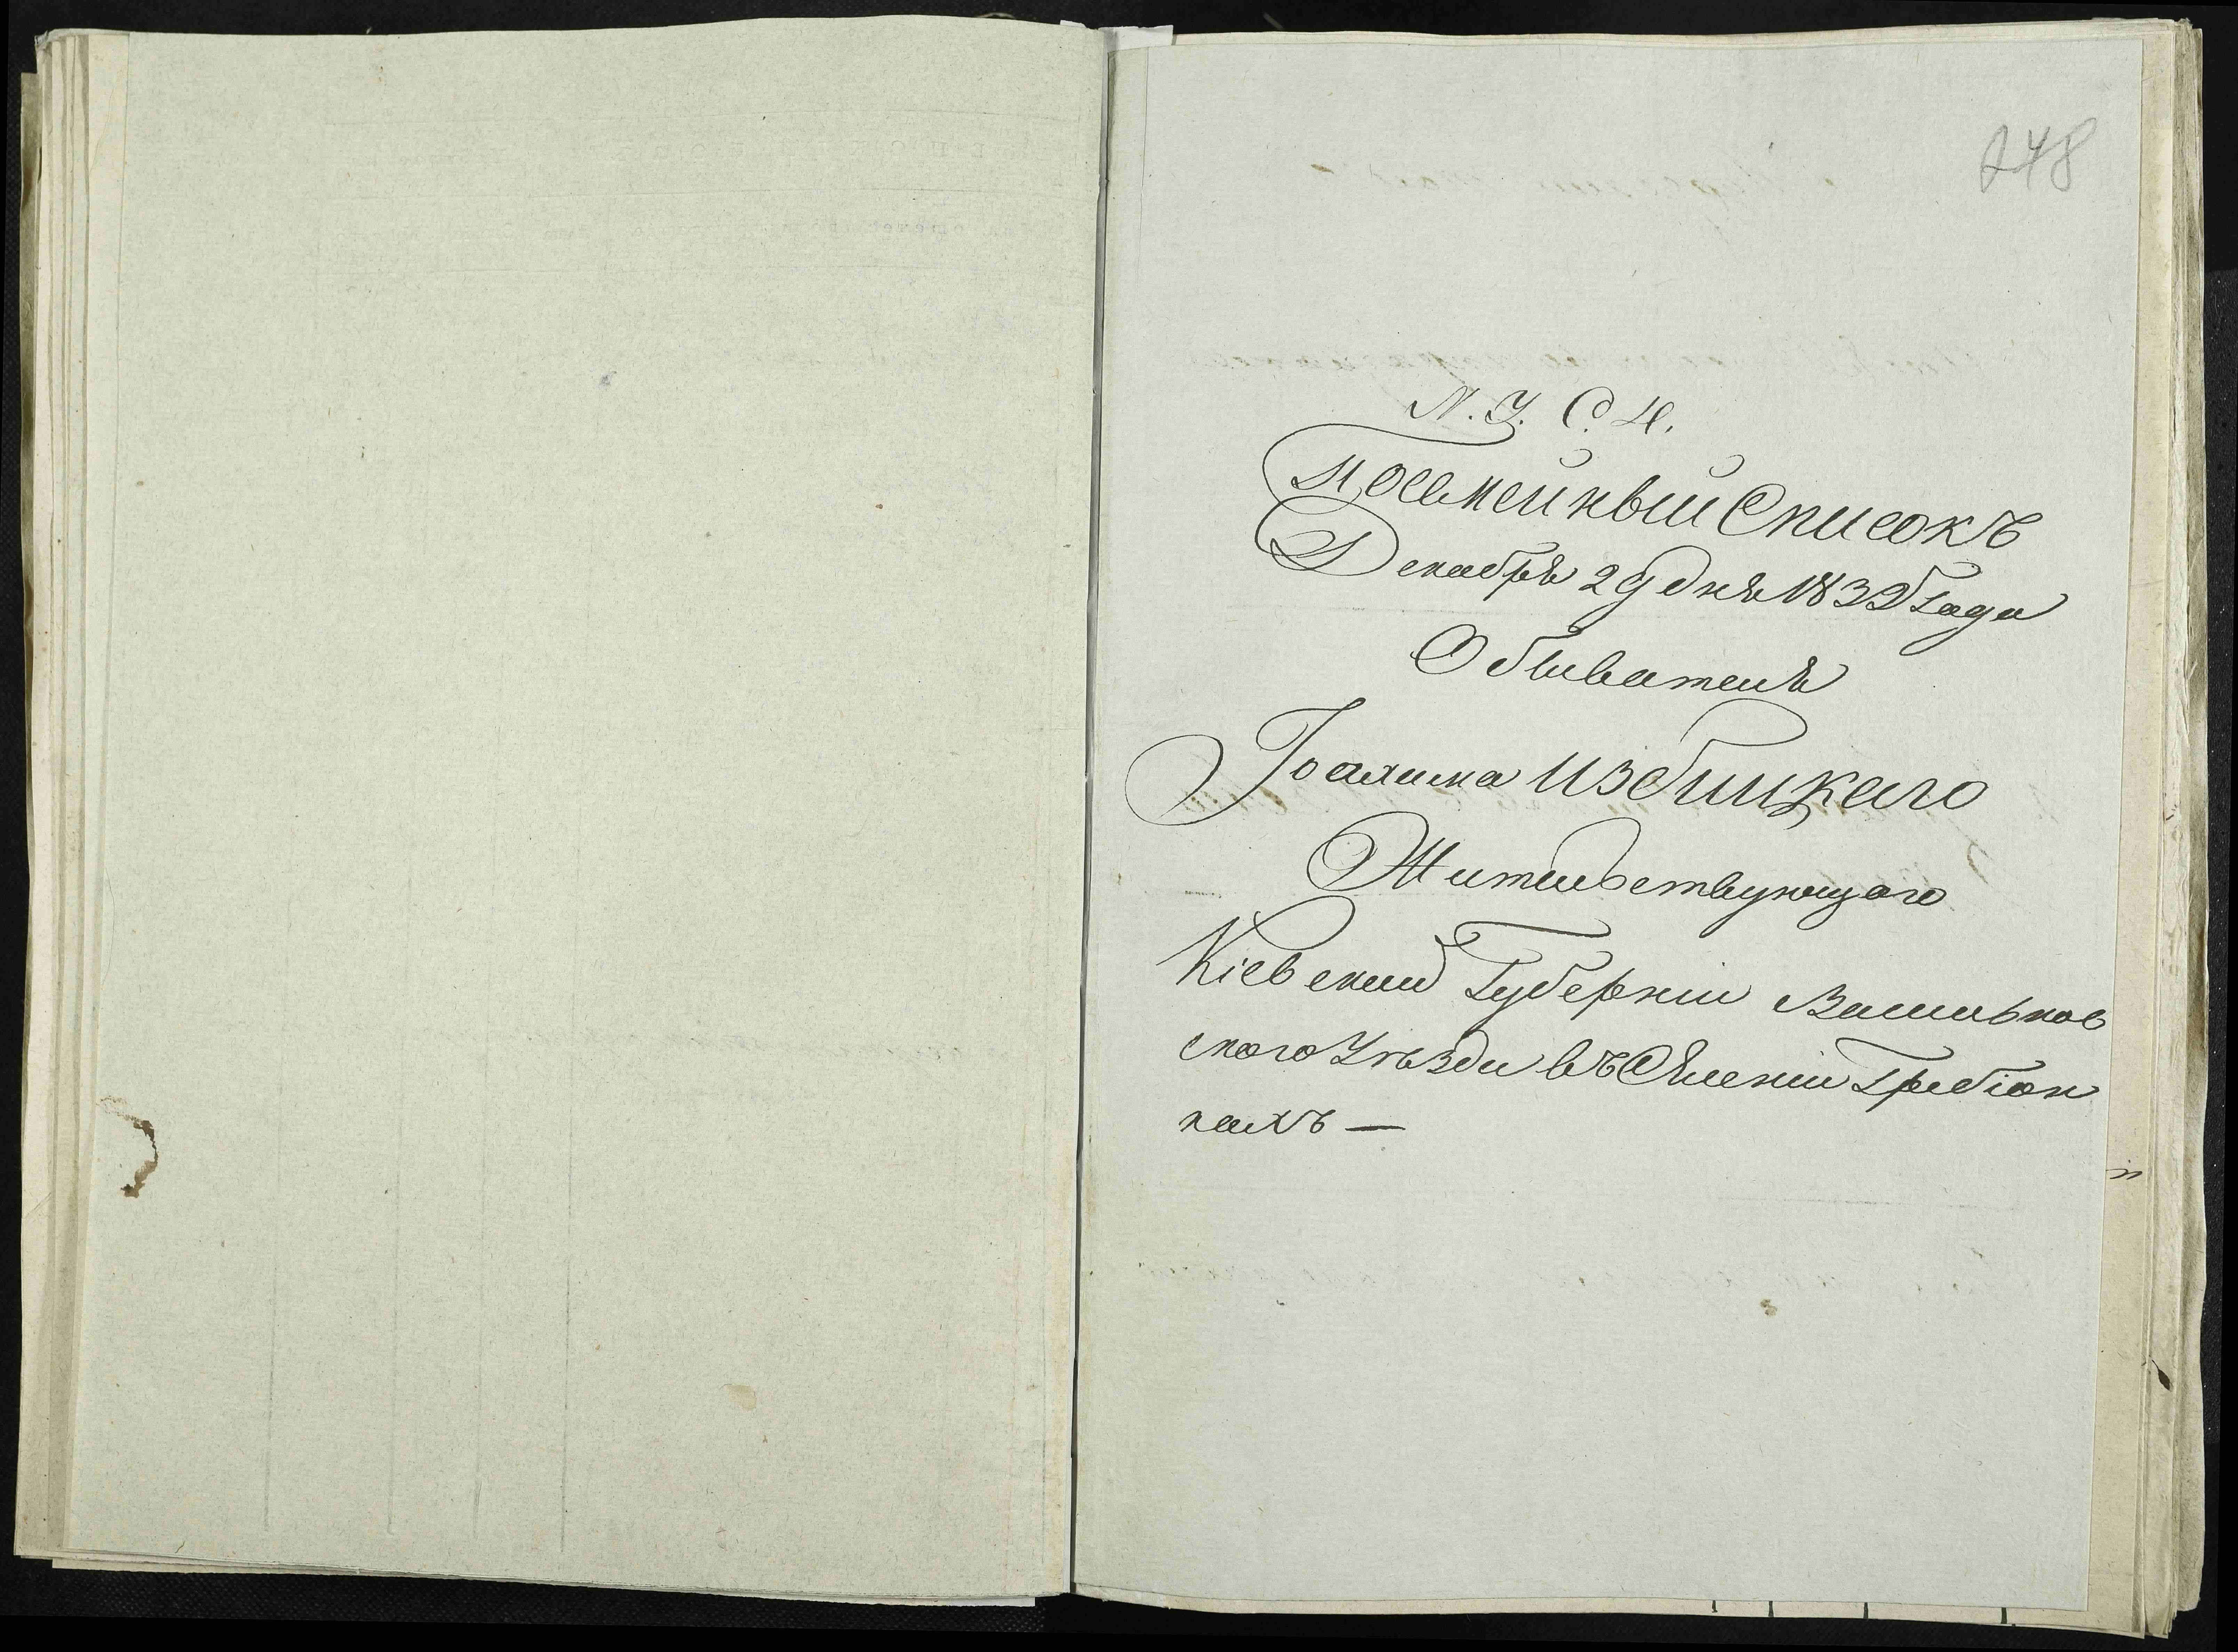 248
N. У. С. Ч.
Посемейный Списокъ
Декабря 29 дня 1832 Года
Обывателя
Іоахима Избицкаго
Жительствующаго
Кіевской Губерніи Васильков
ского Уѣзда въ Селеніи Гребіон
кахъ —